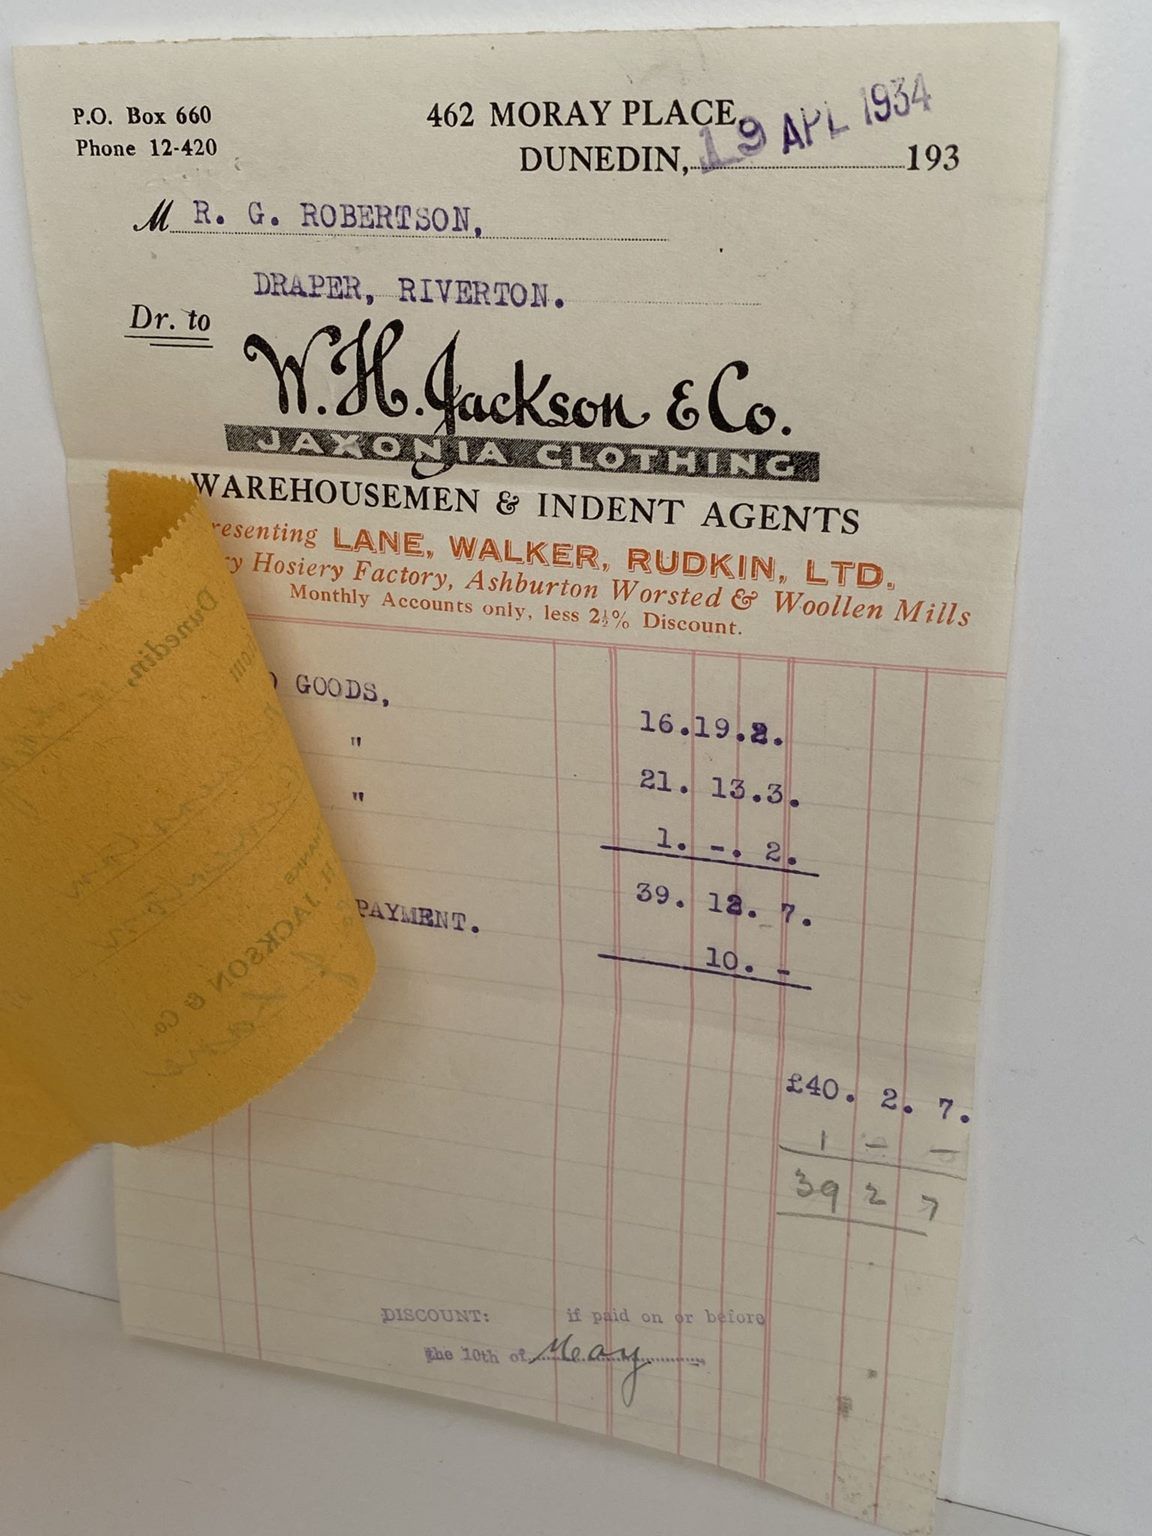 P.O. Box 660
Phone 12-420
462 MORAY PLACE,
DUNEDIN, 19 APL 1934 193
M R. G. ROBERTSON,
DRAPER, RIVERTON.
Dr. to
W.H. Jackson & Co.
JAXONIA CLOTHING
WAREHOUSEMEN & INDENT AGENTS
resenting LANE, WALKER, RUDKIN, LTD.
ry Hosiery Factory, Ashburton Worsted & Woollen Mills
Monthly Accounts only, less 2½% Discount.
GOODS, 16.19.2.
" 21. 13.3.
" 1. -. 2.
39. 12. 7.
PAYMENT. 10. -
£40. 2. 7.
1 - -
39 2 7
DISCOUNT: if paid on or before
the 10th of May
Dunedin,
H. JACKSON & Co.